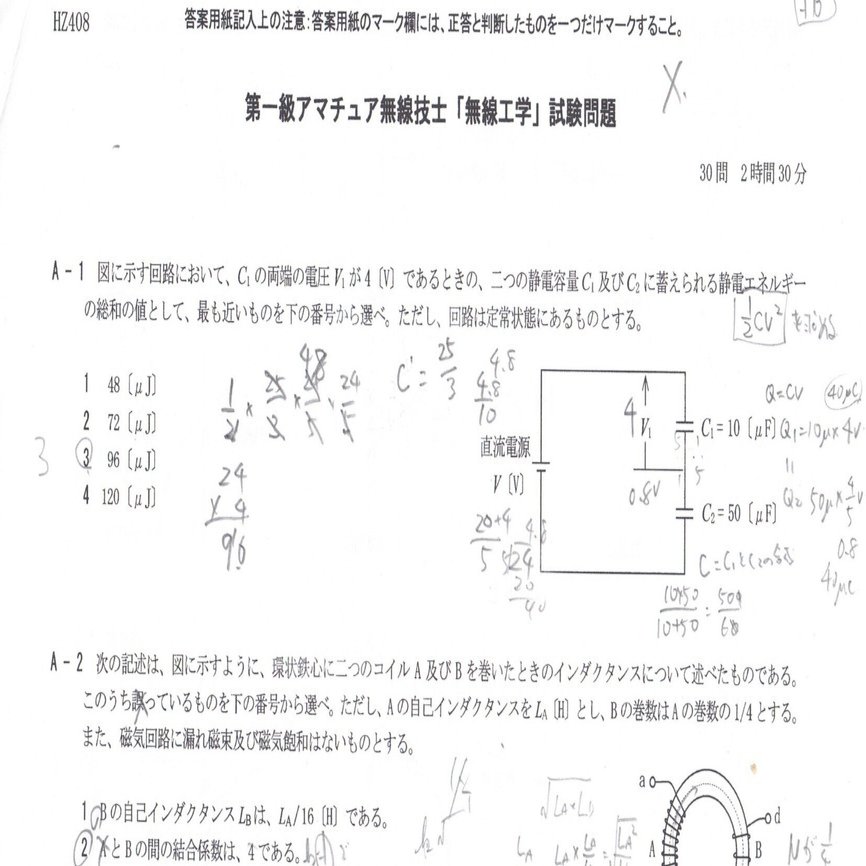 HZ408
答案用紙記入上の注意：答案用紙のマーク欄には、正答と判断したものを一つだけマークすること。
第一級アマチュア無線技士「無線工学」試験問題
30問　2時間30分
A－1　図に示す回路において、C1の両端の電圧V1が4〔V〕であるときの、二つの静電容量C1及びC2に蓄えられる静電エネルギー
の総和の値として、最も近いものを下の番号から選べ。ただし、回路は定常状態にあるものとする。
1/2 CV²
1　48〔μJ〕
2　72〔μJ〕
3　96〔μJ〕
4　120〔μJ〕
3
48
24
× 4
96
C'= 25/3
4.8
4.8
10
直流電源
V〔V〕
4 V1
0.8V
C1＝10〔μF〕
C2＝50〔μF〕
Q=CV
40μC
Q1=10μ×4V
=
50μ×4/5V
0.8
40μC
20+4
5
24
10×50/10+50
A－2　次の記述は、図に示すように、環状鉄心に二つのコイルA及びBを巻いたときのインダクタンスについて述べたものである。
このうち誤っているものを下の番号から選べ。ただし、Aの自己インダクタンスをLA〔H〕とし、Bの巻数はAの巻数の1/4とする。
また、磁気回路に漏れ磁束及び磁気飽和はないものとする。
1　Bの自己インダクタンスLBは、LA/16〔H〕である。
2　AとBの間の結合係数は、4である。
a
d
A
B